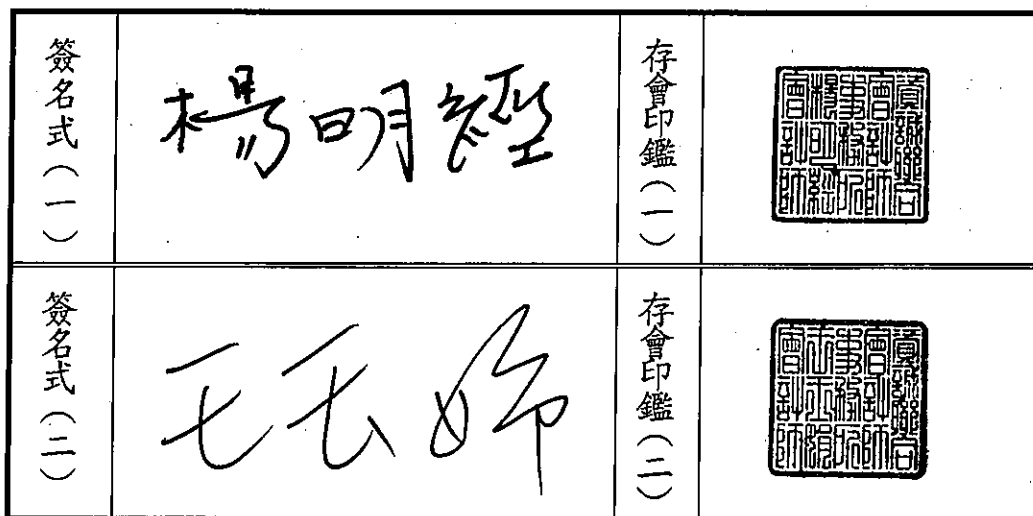 簽名式（一）
楊明經
存會印鑑（一）
資誠聯合
會計師
事務所
楊明經
會計師
簽名式（二）
王玉娟
存會印鑑（二）
資誠聯合
會計師
事務所
王玉娟
會計師